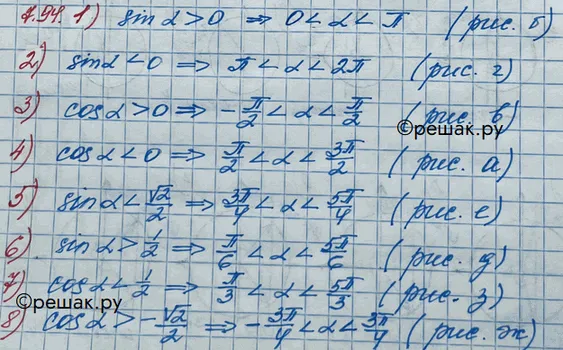 7.94. 1) sin α > 0 ⇒ 0 < α < π (рис. б)
2) sin α < 0 ⇒ π < α < 2π (рис. г)
3) cos α > 0 ⇒ -π/2 < α < π/2 (рис. в)
©решак.ру
4) cos α < 0 ⇒ π/2 < α < 3π/2 (рис. а)
5) sin α < √2/2 ⇒ 3π/4 < α < 5π/4 (рис. е)
6) sin α > 1/2 ⇒ π/6 < α < 5π/6 (рис. д)
7) cos α < 1/2 ⇒ π/3 < α < 5π/3 (рис. з)
©решак.ру
8) cos α > -√2/2 ⇒ -3π/4 < α < 3π/4 (рис. ж)